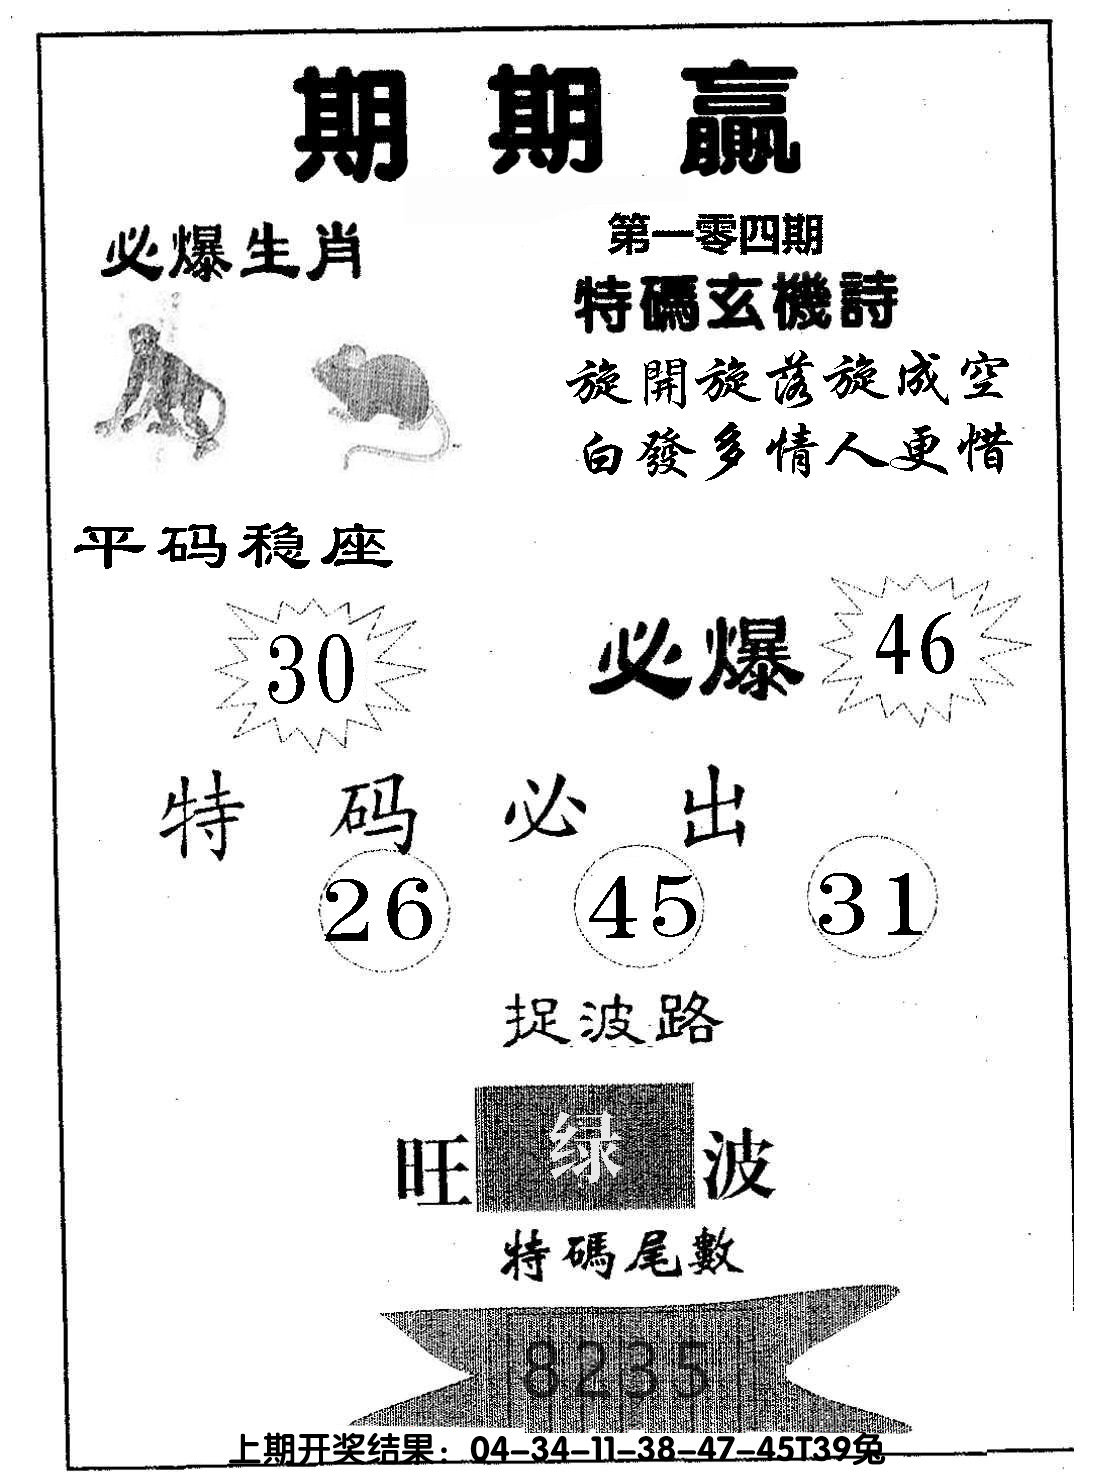 期期贏
必爆生肖
第一零四期
特碼玄機詩
旋開旋落旋成空
白發多情人更惜
平码稳座
30
必爆 46
特码必出
26 45 31
捉波路
旺 绿 波
特碼尾數
8235
上期开奖结果：04-34-11-38-47-45T39兔